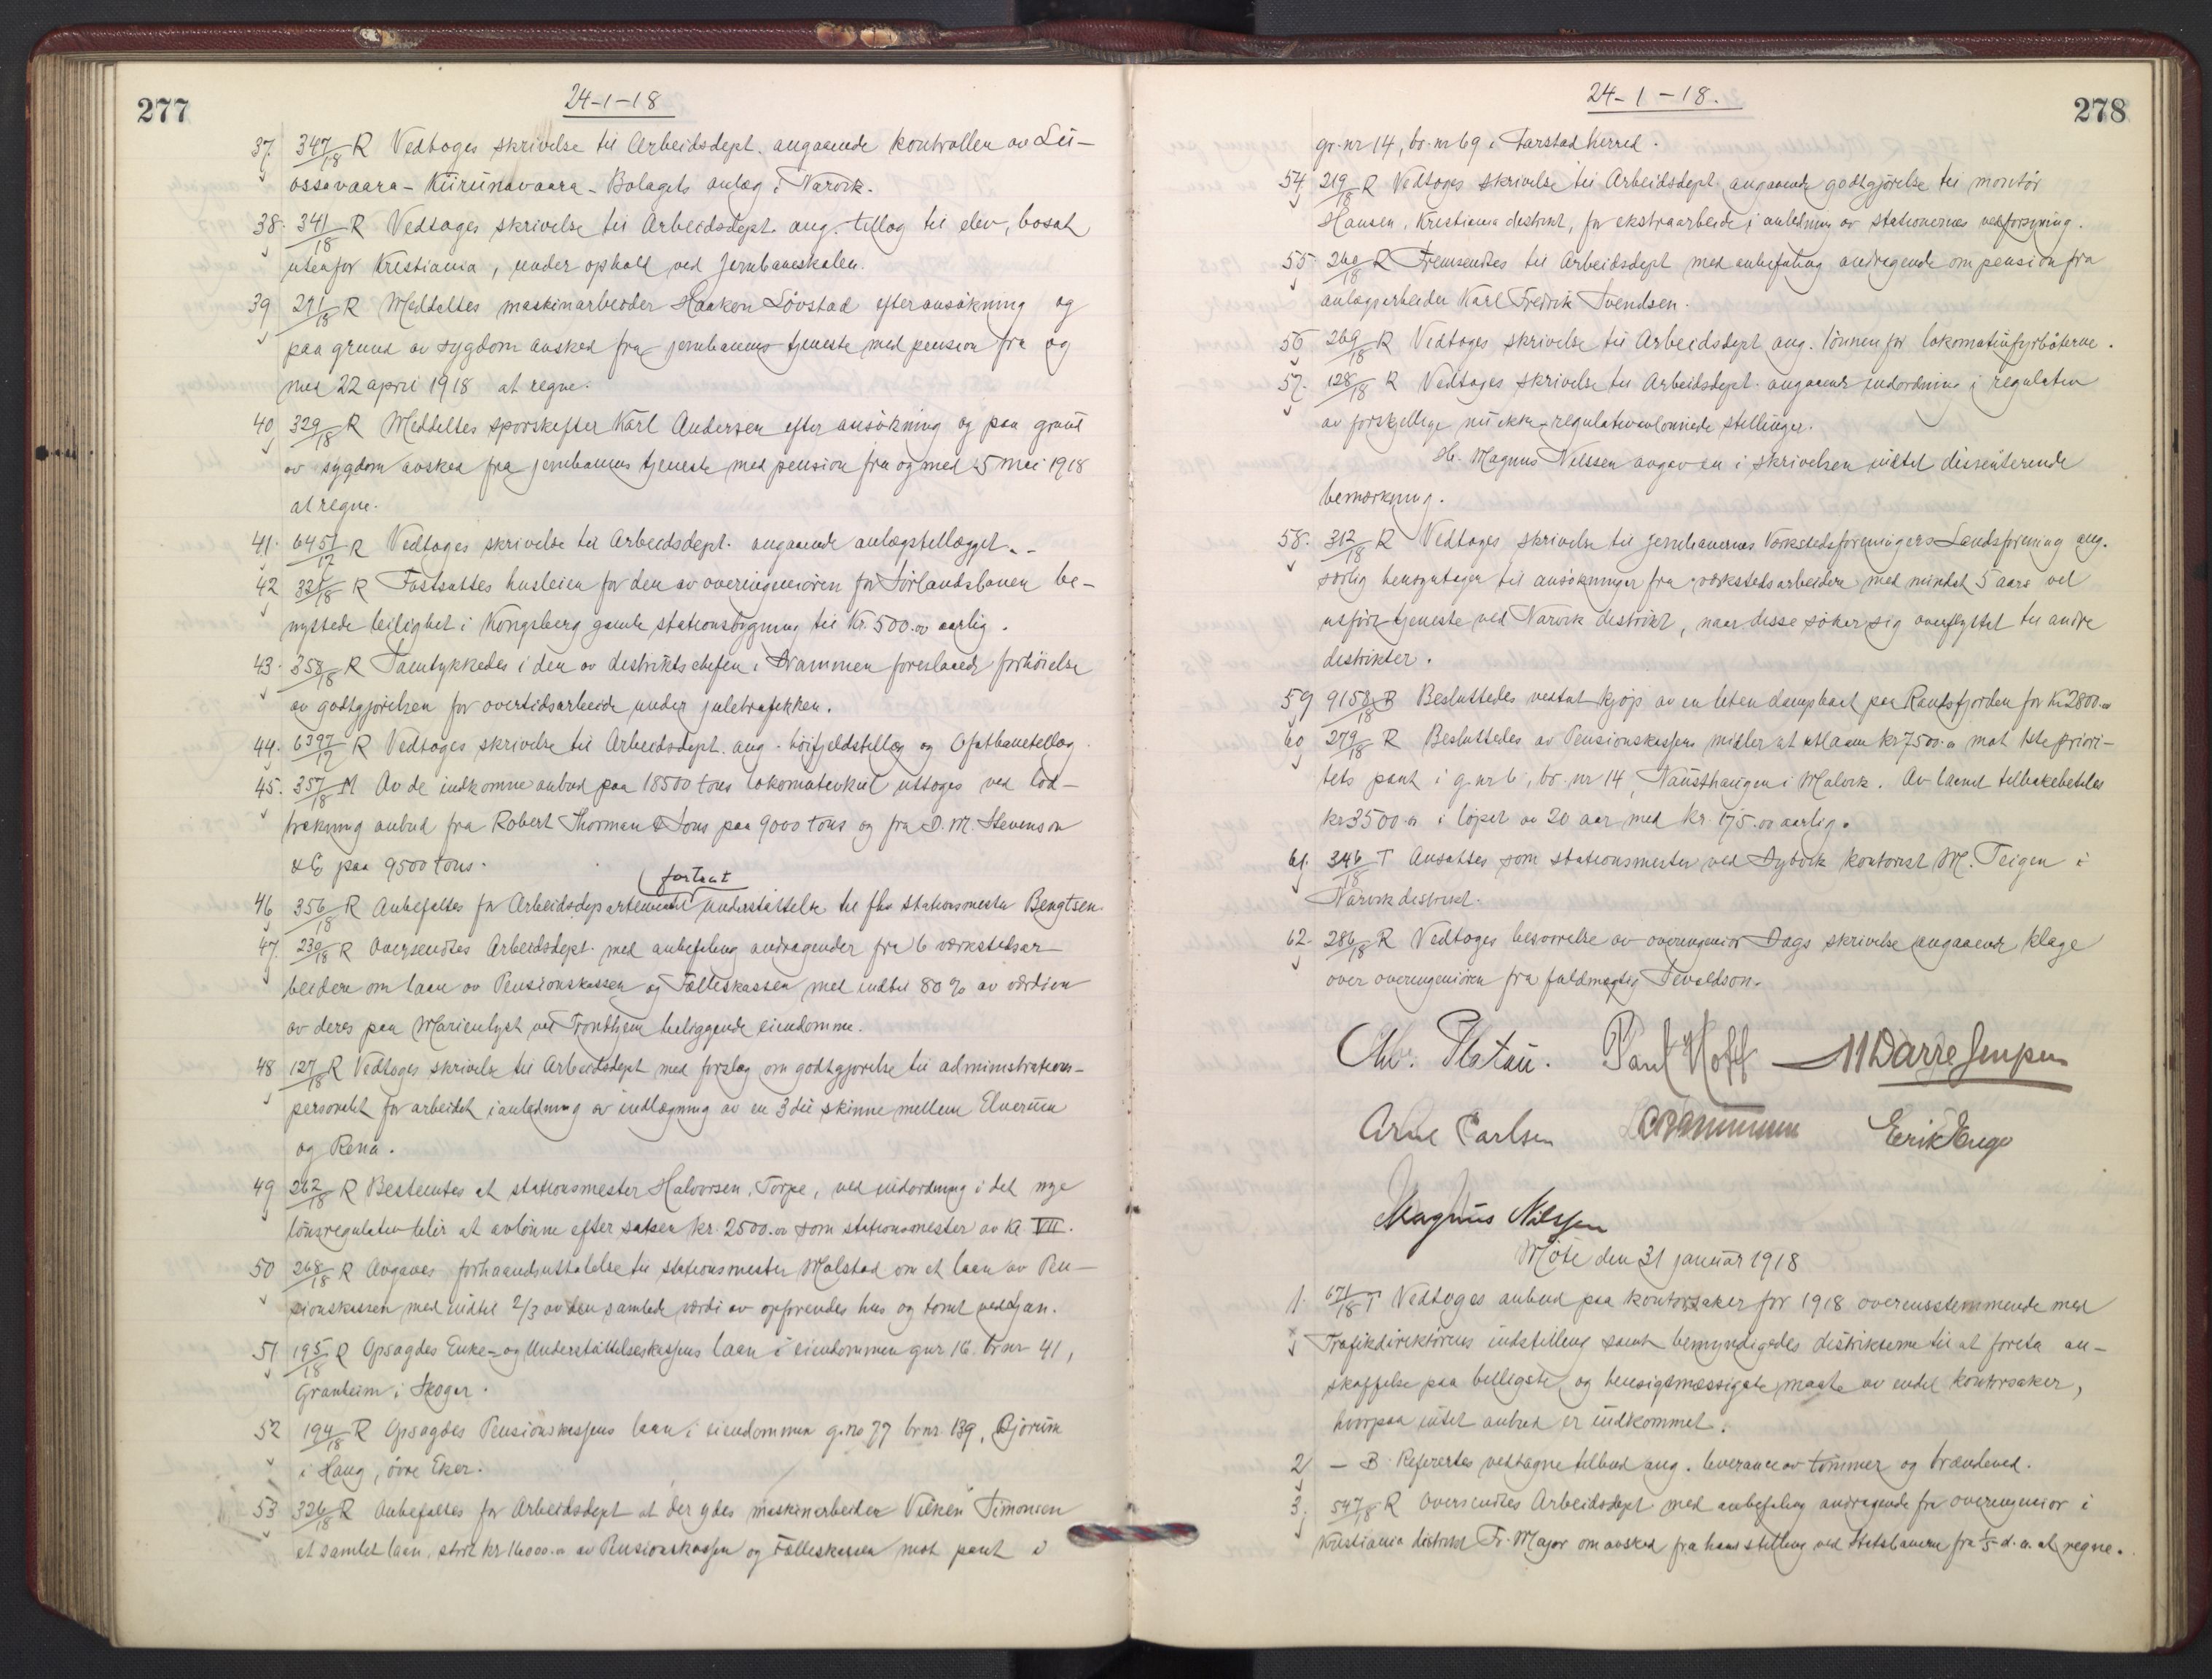 277
24-1-18
37. 347/18 R Vedtoges skrivelse til Arbeidsdept. angaaende kontrollen av Lu-
ossavaara-Kiirunavaara-Bolagets anlæg i Narvik.
38. 341/18 R Vedtoges skrivelse til Arbeidsdept. ang. tillæg til elev, bosat
utenfor Kristiania, under ophold ved Jernbaneskolen.
39 291/18 R Meddeltes maskinarbeider Haakon Lövstad efter ansökning og
paa grund av sygdom avsked fra jernbanens tjeneste med pension fra og
med 22 april 1918 at regne.
40 329/18 R Meddeltes sporskifter Karl Andersen efter ansökning og paa grund
av sygdom avsked fra jernbanens tjeneste med pension fra og med 5 mai 1918
at regne.
41. 6451/17 R Vedtoges skrivelse til Arbeidsdept. angaaende anlægstillægget.
42 321/18 R Fastsattes husleien for den av overingeniören for Sörlandsbanen be-
nyttede leilighet i Kongsberg gamle stationsbygning til Kr. 500.00 aarlig.
43. 358/18 R Samtykkedes i den av distriktschefen i Drammen foreslaaede forhöielse
av godtgjörelsen for overtidsarbeide under juletrafikken.
44. 6397/17 R Vedtoges skrivelse til Arbeidsdept. ang. höifjeldstillæg og Ofotbanetillæg.
45. 357/18 M Av de indkomne anbud paa 18500 tons lokomotivkul uttoges ved lod-
trækning anbud fra Robert Thorman & Sons paa 9000 tons og fra D. M. Stevenson
& Co paa 9500 tons.
46 356/18 R Anbefaltes for Arbeidsdepartementet fortsat understöttelse til fhv stationsmester Bengtsen.
47. 239/18 R Oversendtes Arbeidsdept. med anbefaling andragender fra 6 verkstedsar-
beidere om laan av Pensionskassen og Fælleskassen med indtil 80 % av værdien
av deres paa Marienlyst ved Trondhjem beliggende eiendomme.
48 127/18 R Vedtoges skrivelse til Arbeidsdept med forslag om godtgjörelse til administrations-
personalet for arbeidet i anledning av indlægning av en 3die skinne mellem Elverum
og Rena.
49 262/18 R Bestemtes at stationsmester Halvorsen, Torpe, ved indordning i det nye
lönsregulativ blir at avlönne efter satsen kr. 2500.00 som stationsmester av kl VII.
50 268/18 R Avgaves forhaandsuttalelse til stationsmester Molstad om et laan av Pen-
sionskassen med indtil 2/3 av den samlede værdi av opförendes hus og tomt ved Gran.
51 195/18 R Opsagdes Enke- og Understöttelseskassens laan i eiendommen gnr 16. brnr 41,
Granheim i Skoger.
52 194/18 R Opsagdes Pensionskassens laan i eiendommen g.no 77 brnr. 139, Bjørum
i Haug, övre Eker.
53 326/18 R Anbefaltes for Arbeidsdept at der ydes maskinarbeider Vilken Simonsen
et samlet laan, stort kr 16000.00 av Pensionskassen og Fælleskassen mot pant i
278
24-1-18.
gr.nr 14, br.nr 69 i Aarstad herred.
54 219/18 R Vedtoges skrivelse til Arbeidsdept. angaaende godtgjörelse til montör
Hansen, Kristiania distrikt, for ekstraarbeide i anledning av stationernes vedforsyning.
55 240/18 R Fremsendtes til Arbeidsdept med anbefaling andragende om pension fra
anlægsarbeider Karl Fredrik Svendsen.
56 269/18 R Vedtoges skrivelse til Arbeidsdept ang. lönnen for lokomotivfyrböterne.
57. 128/18 R Vedtoges skrivelse til Arbeidsdept. angaaende indordning i regulativ
av forskjellige nu ikke-regulativavlönnede stillinger.
Hr. Magnus Nilssen avgav en i skrivelsen indtat dissenterende
bemerkning.
58. 312/18 R Vedtoges skrivelse til jernbanernes Verkstedsforeningers Landsforening ang.
særlig hensyntagen til ansökninger fra verkstedsarbeidere med mindst 5 aars vel
utfört tjeneste ved Narvik distrikt, naar disse söker sig overflyttet til andre
distrikter.
59 9158/18 B Besluttedes vedtat kjöp av en liten dampbaat paa Randsfjorden for Kr 2800.00
60 279/18 R Besluttedes av Pensionskassens midler at utlaane kr 7500.00 mot 1ste priori-
tets pant i g.nr 6, br. nr 14, Nausthaugen i Malvik. Av laanet tilbakebetales
kr 3500.00 i löpet av 20 aar med kr. 175.00 aarlig.
61. 346/18 T Ansattes som stationsmester ved Dybvik kontorist M. Teigen i
Narvik distrikt.
62. 286/18 R Vedtoges besvarelse av overingeniör Dags skrivelse angaaende klage
over overingeniören fra fuldmægtig Tevaldson.
Chr. Platou. Paul Hoff M Darre Jenssen
Arne Carlsen Erik Enge
Magnus Nilssen
Möte den 31 januar 1918
1. 671/18 T Vedtoges anbud paa kontorsaker for 1918 overensstemmende med
Trafikdirektörens indstilling samt bemyndigedes distrikterne til at foreta an-
skaffelse paa billigste og hensigtsmæssigste maate av endel kontorsaker,
hvorpaa intet anbud er indkommet.
2 - B Refererdes vedtagne tilbud ang. leverance av tömmer og brændeved.
3. 547/18 R Oversendtes Arbeidsdept med anbefaling andragende fra overingeniör i
Kristiania distrikt Fr. Major om avsked fra hans stilling ved Statsbanerne fra 1/5 d. a. at regne.